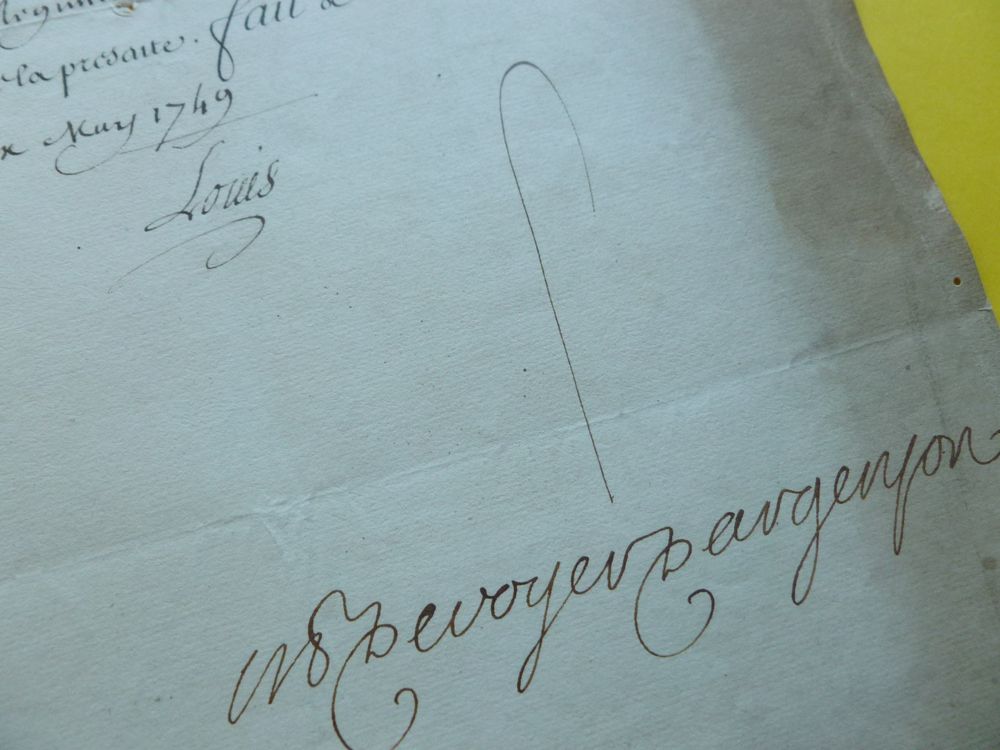 la presente. fait
May 1749
Louis
M P De voyer D argenson